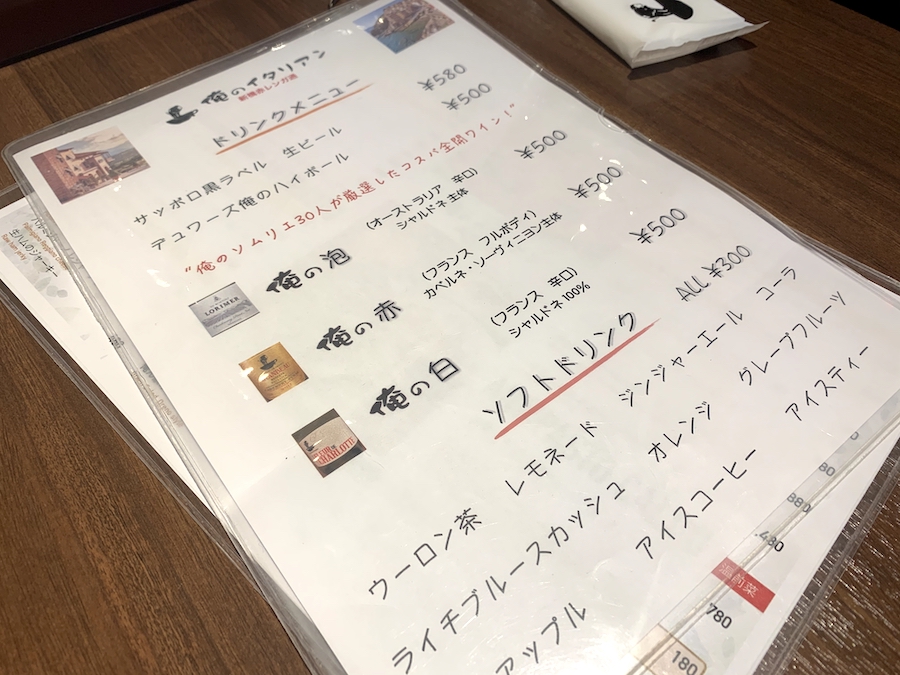 俺のイタリアン
新橋赤レンガ通
ドリンクメニュー
サッポロ黒ラベル 生ビール ¥580
デュワーズ俺のハイボール ¥500
"俺のソムリエ30人が厳選したコスパ全開ワイン!"
俺の泡 (オーストラリア 辛口) ¥500
シャルドネ主体
LORIMER
俺の赤 (フランス フルボディ) ¥500
カベルネ・ソーヴィニヨン主体
俺の白 (フランス 辛口) ¥500
シャルドネ100%
CHARLOTTE
ソフトドリンク ALL ¥300
ウーロン茶 レモネード ジンジャーエール コーラ
ライチブルースカッシュ オレンジ グレープフルーツ
アップル アイスコーヒー アイスティー
80
880
480
780
180